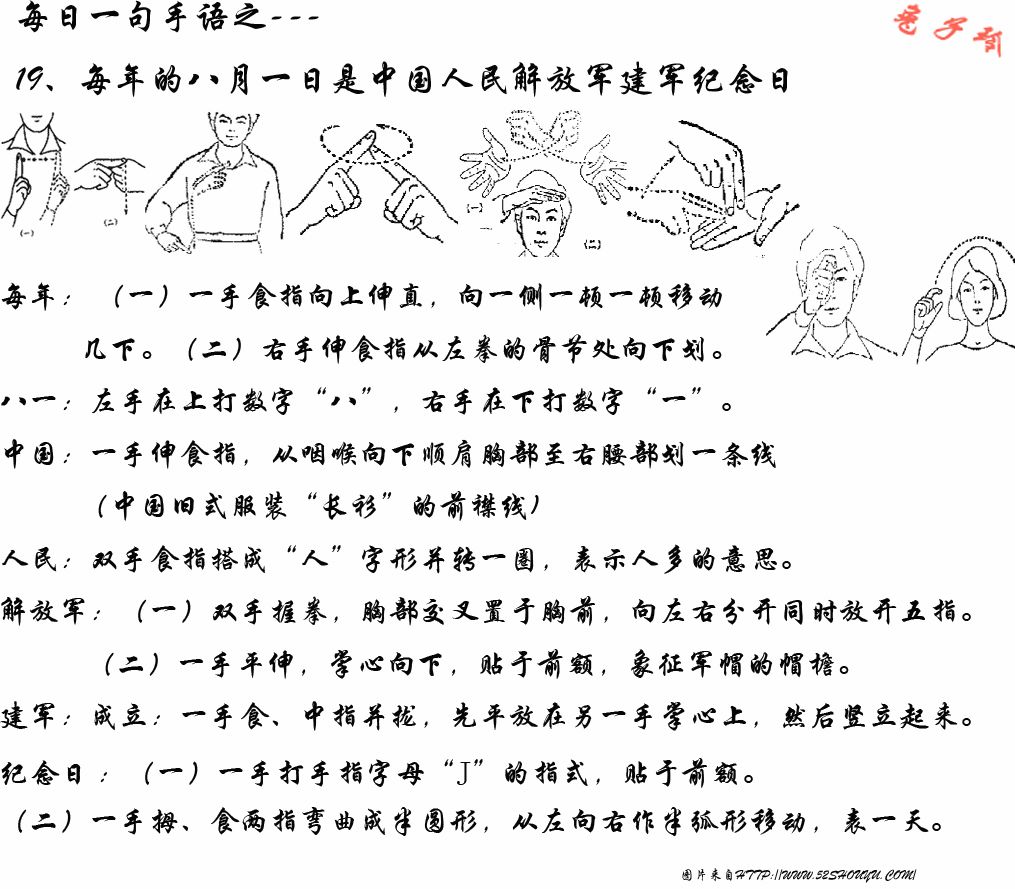 每日一句手语之---
19、每年的八月一日是中国人民解放军建军纪念日
(一)
(二)
(一)
(二)
每年：（一）一手食指向上伸直，向一侧一顿一顿移动
几下。（二）右手伸食指从左拳的骨节处向下划。
八一：左手在上打数字“八”，右手在下打数字“一”。
中国：一手伸食指，从咽喉向下顺肩胸部至右腰部划一条线
（中国旧式服装“长衫”的前襟线）
人民：双手食指搭成“人”字形并转一圈，表示人多的意思。
解放军：（一）双手握拳，胸部交叉置于胸前，向左右分开同时放开五指。
（二）一手平伸，掌心向下，贴于前额，象征军帽的帽檐。
建军：成立：一手食、中指并拢，先平放在另一手掌心上，然后竖立起来。
纪念日：（一）一手打手指字母“J”的指式，贴于前额。
（二）一手拇、食两指弯曲成半圆形，从左向右作半弧形移动，表一天。
图片来自HTTP://WWW.52SHOUYU.COM/